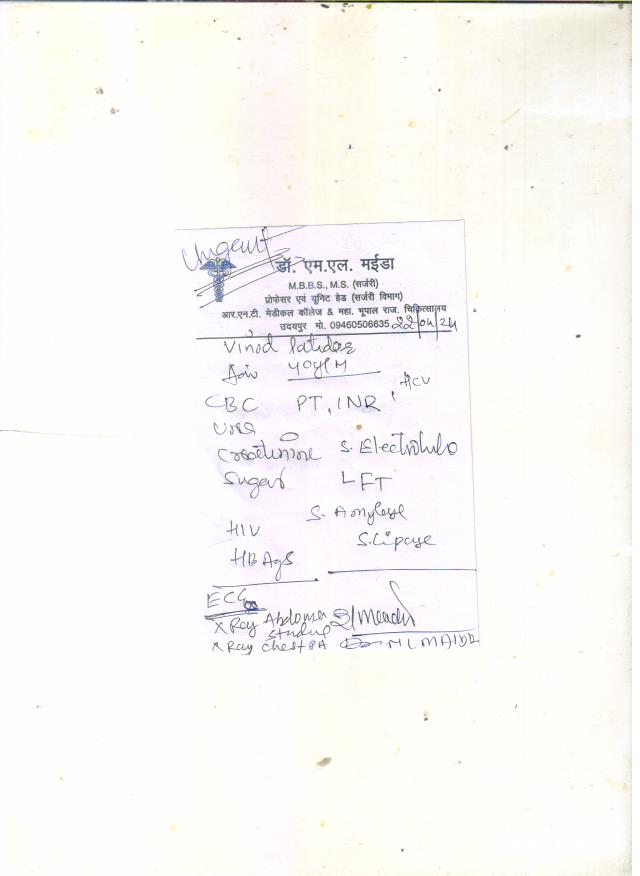 Urgent
डॉ. एम.एल. मईडा
M.B.B.S., M.S. (सर्जरी)
प्रोफेसर एवं यूनिट हेड (सर्जरी विभाग)
आर.एन.टी. मेडीकल कॉलेज & महा. भूपाल राज. चिकित्सालय
उदयपुर मो. 09460506635 22/04/24
Vinod Patidar
40y/M
CBC PT, INR, HCV
Urea
Creatinine S. Electrolytes
Sugar LFT
S. Amylase
HIV S. Lipase
HBAgS
ECG
X Ray Abdomen
standing
X Ray Chest PA ML MAIDA